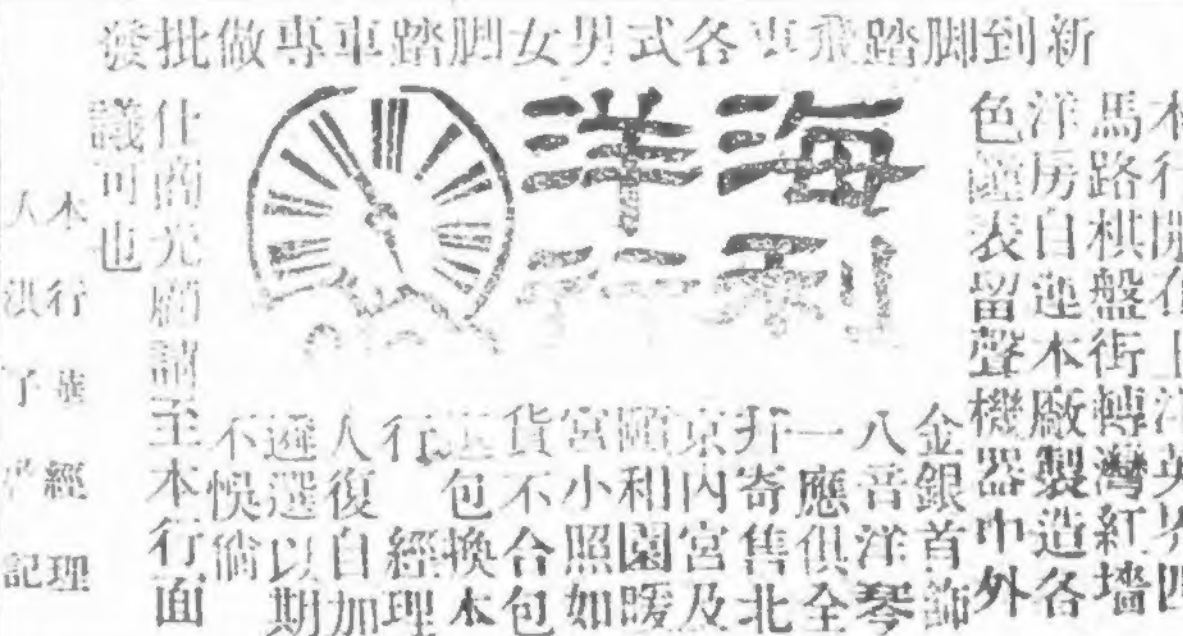 新到脚踏飛車各式男女脚踏車專做批發
海利
洋行
本行開在上洋英界四
馬路棋盤街轉灣紅墻
洋房自運本廠製造各
色鐘表留聲機器中外
金銀首飾
八音洋琴
一應俱全
并寄售北
京內宮及
頤和園暖
宮小照如
貨不合包
包換本
行經理
人復自加
遴選以期
不悞倘
仕商光顧請至本行面
議可也
本行華經理
人洪記